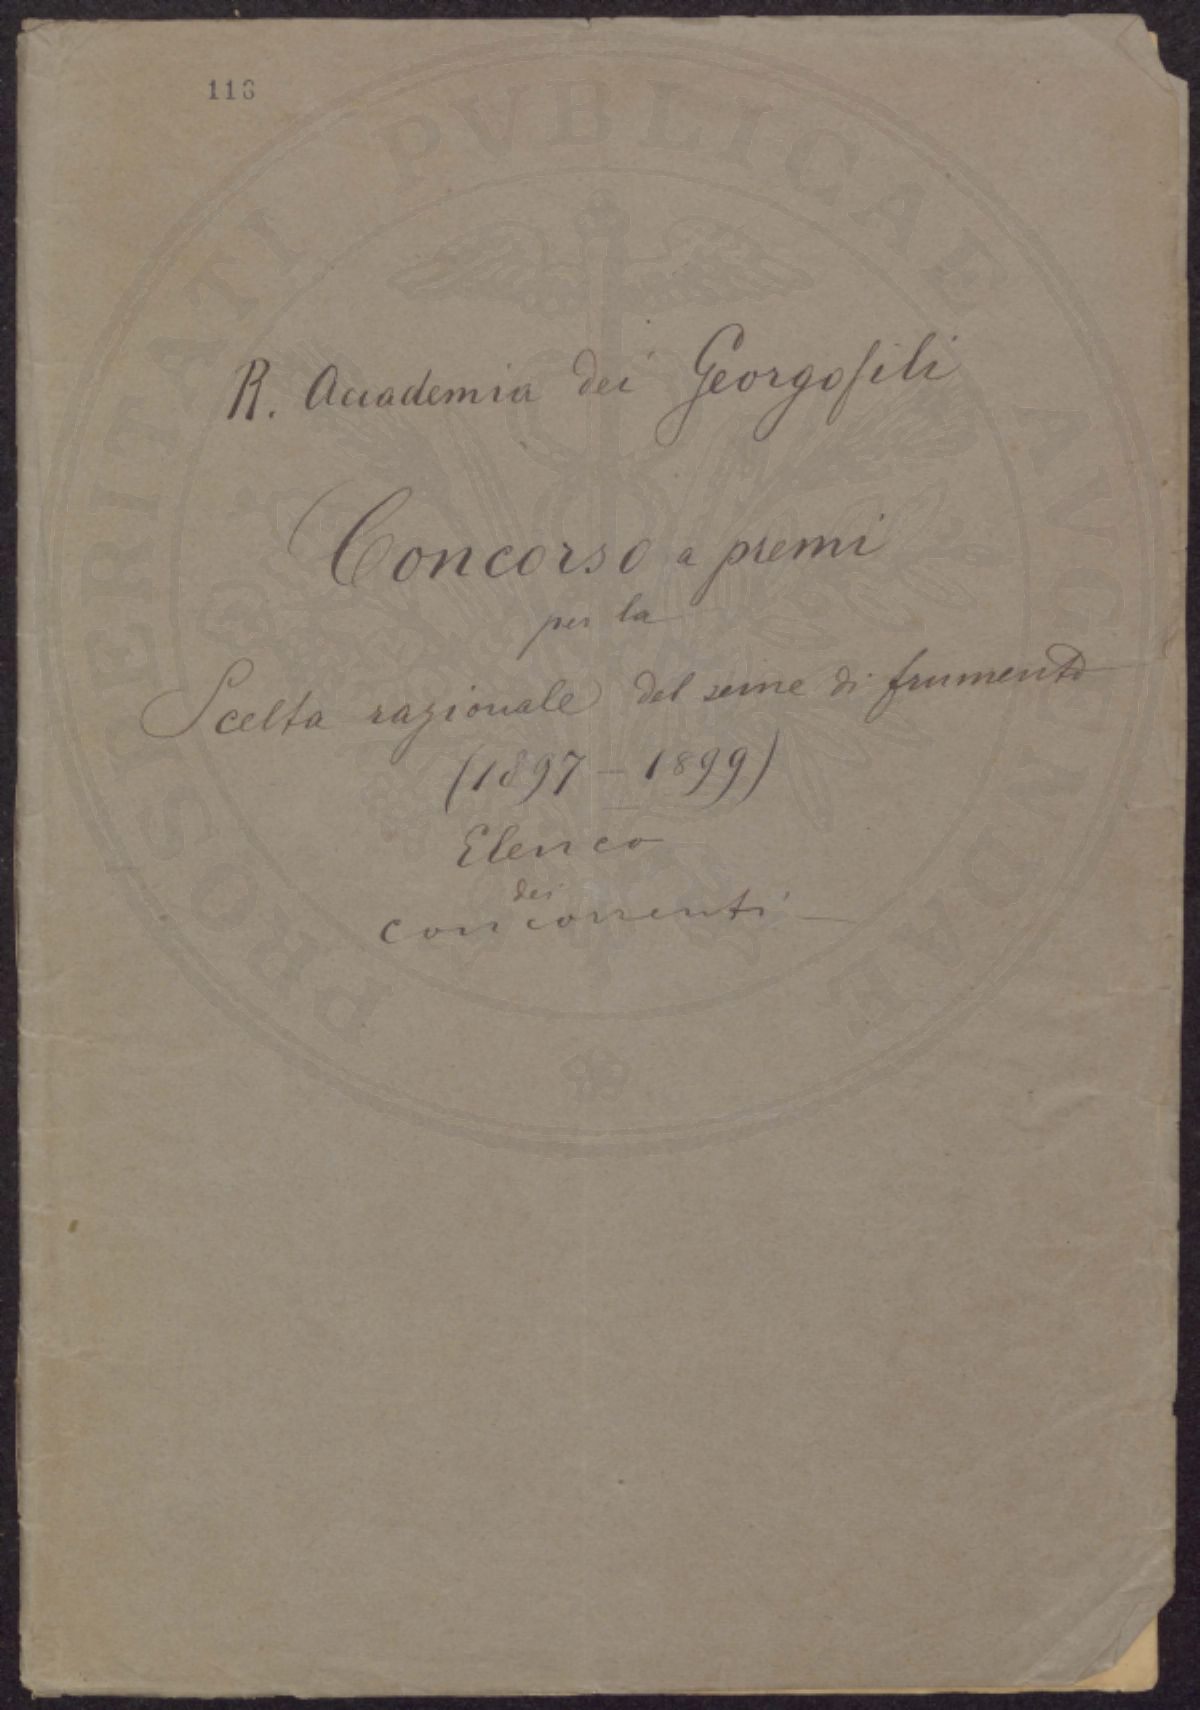 116
PROSPERITATI PVBLICAE AVGENDAE
R. Accademia dei Georgofili
Concorso a premi
per la
Scelta razionale del seme di frumento
(1897 - 1899)
Elenco
dei
concorrenti